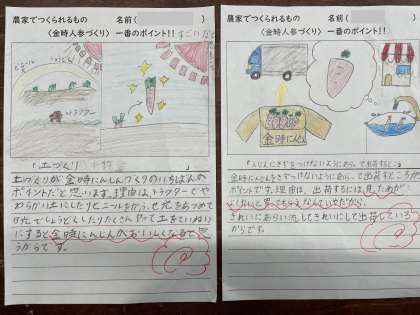 農家でつくられるもの 名前( )
〈金時人参づくり〉 一番のポイント!!
ビニール
トラクター
「土づくり」
土づくりが金時にんじんづくりのいちばんの
ポイントだと思います。理由は、トラクターでや
わらかい土にしたりビニールをかぶせ
しょうどくしたりたくさんやって土をていねい
にすると金時にんじんがおいしくなると思
うからです。
農家でつくられるもの 名前( )
〈金時人参づくり〉 一番のポイント!!
金時にんじん
「にんじんにきずをつけないようにあらって出荷するところ」
金時にんじんをきずつけないようにあらって出荷するところが
ポイントです。理由は、出荷するには、見ためが
よくないと買ってもらえなんていけだから、
きれいにあらい流してきれいにして出荷している
からです。